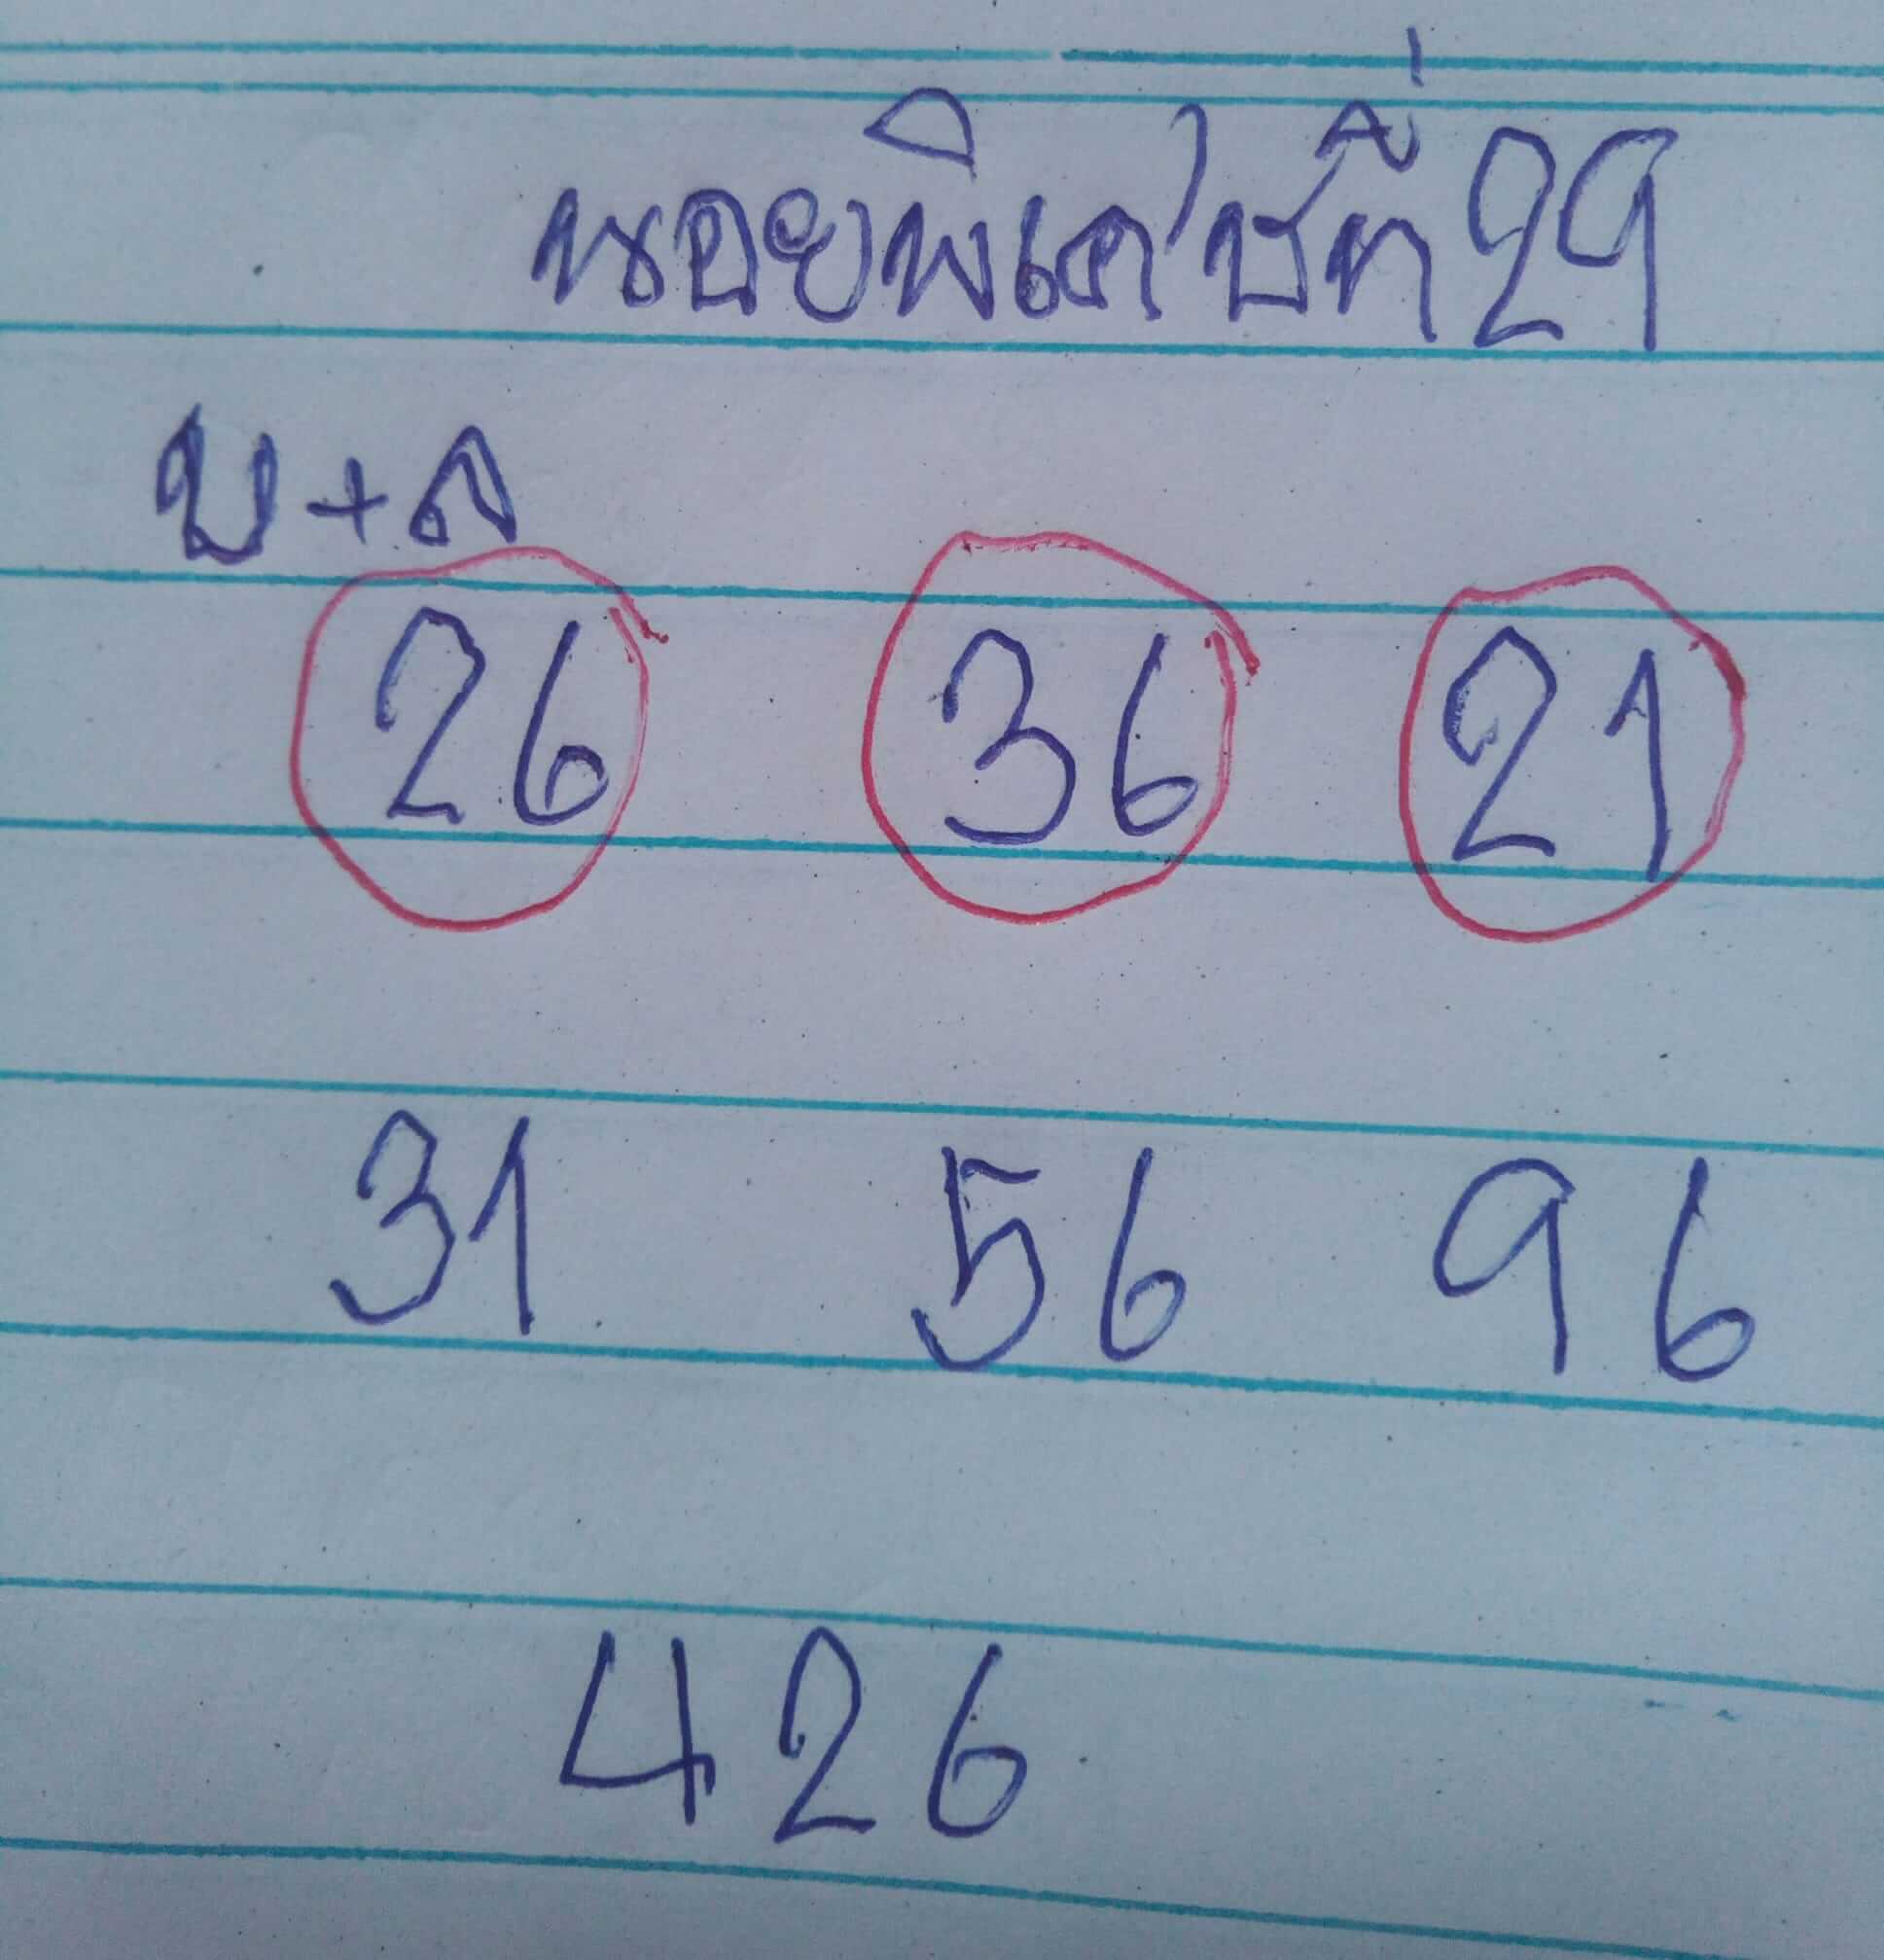 นอยพิเศษที่29
บ+ล
26 36 21
31 56 96
426